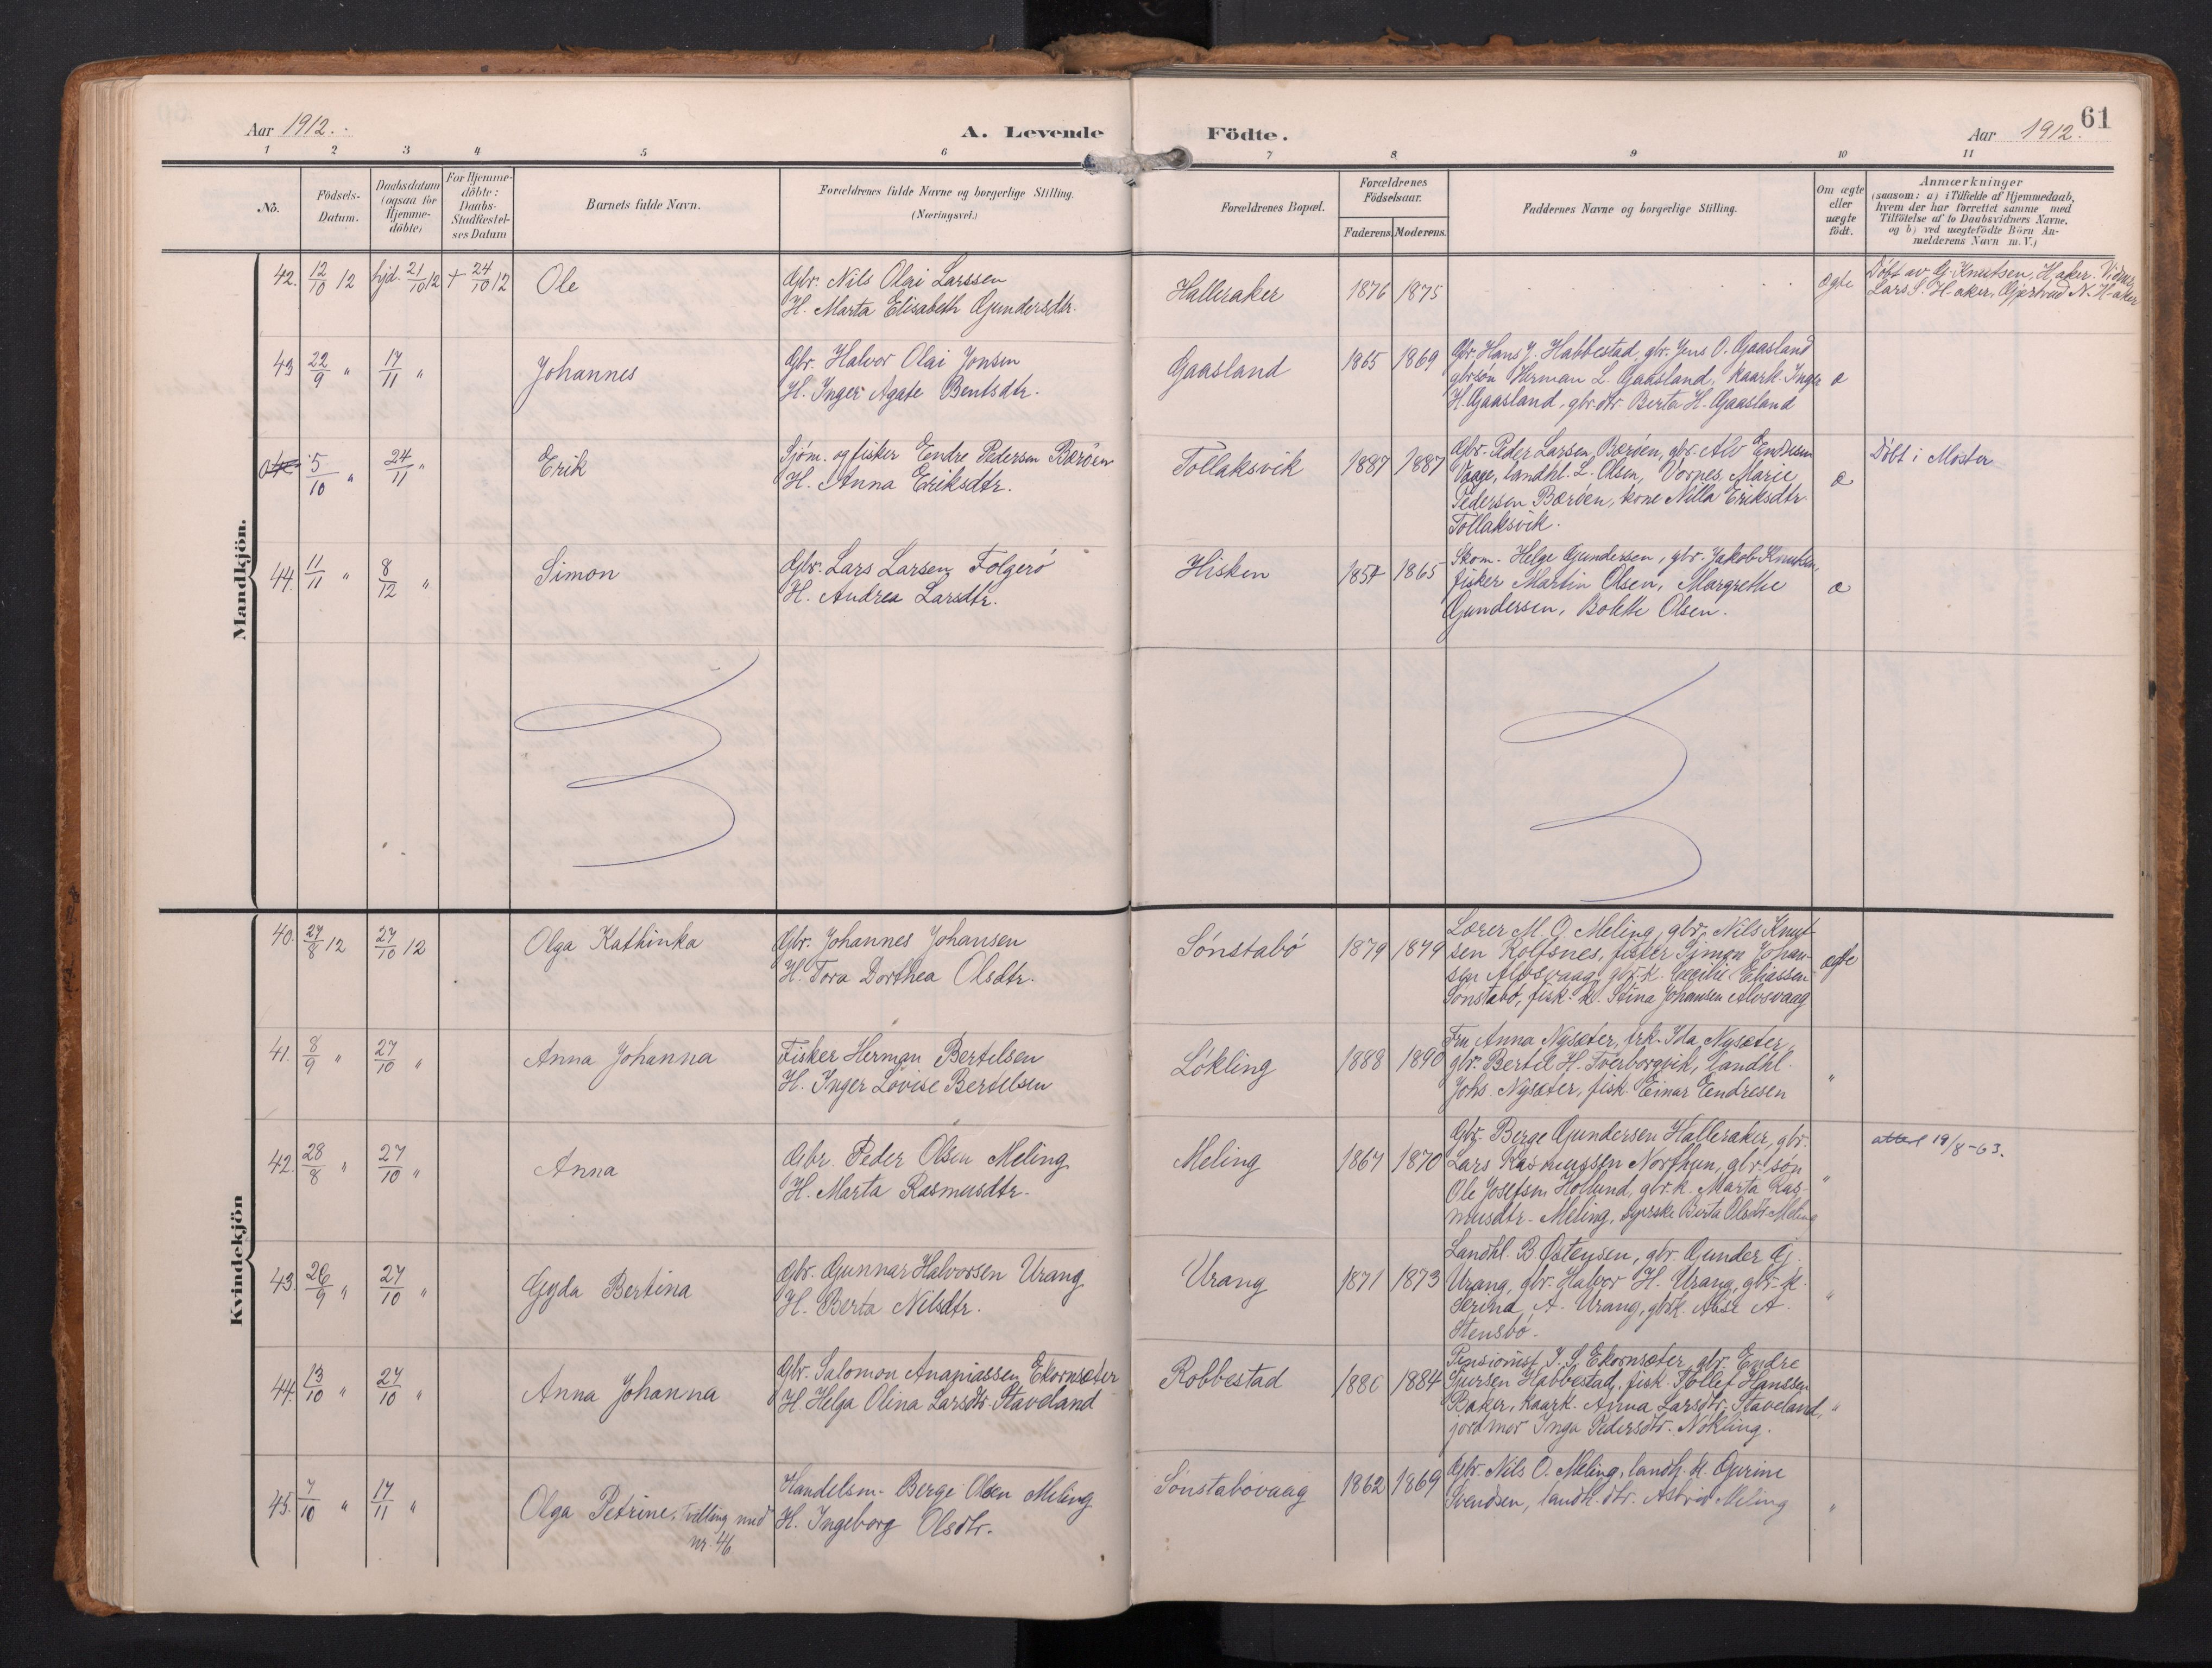 61
Aar 1912.
A. Levende
Födte.
Aar 1912.
1 2 3 4 5 6 7 8 9 10 11
No.
Födsels-
Datum.
Daabsdatum
(ogsaa for
Hjemme-
döbte)
For Hjemme-
döbte:
Daabs-
Stadfæstel-
ses Datum
Barnets fulde Navn.
Forældrenes fulde Navne og borgerlige Stilling.
(Næringsvei.)
Forældrenes Bopæl.
Forældrenes
Födselsaar.
Faderens. Moderens.
Faddernes Navne og borgerlige Stilling.
Om ægte
eller
uægte
födt.
Anmærkninger
(saasom: a) i Tilfælde af Hjemmedaab,
hvem der har forrettet samme med
Tilföielse af to Daabsvidners Navne.
og b) ved uægtefödte Börn An-
melderens Navn m. V.)
Mandkjön.
42. 12/10 12 hjd. 21/10 12 + 24/10 12 Ole
Gbr. Nils Olai Larssen
H. Marta Elisabeth Gundersdtr.
Halleraker 1876 1875 ægte
Döbt av G. Knutsen, H.aker. Vidner
Lars S. H-aker, Gjertrud N. H-aker
43 22/9 " 17/11 " Johannes
Gbr. Halvor Olai Jonsen
H. Inger Agate Bentsdtr.
Gaasland 1865 1869
Gbr. Hans J. Habbestad, gbr. Jens O. Gaasland
gbrsön Herman L. Gaasland, kaark. Inger
H. Gaasland, gbr.dtr. Berta H. Gaasland
æ
5/10 " 24/11 " Erik
Sjöm. og fisker Endre Pedersen Bæröen
H. Anna Eriksdtr.
Tollaksvik 1887 1887
Gbr. Peder Larsen Bæröen, gbr. Alv Endresen
Vaage, landhl. L. Olsen, Vornes, Marie
Pedersen Bæröen, kone Nilla Eriksdtr.
Tollaksvik.
æ
Döbt i Moster
44. 11/11 " 8/12 " Simon
Gbr. Lars Larsen Folgerö
H. Andrea Larsdtr.
Hisken 1854 1865
Skom. Helge Gundersen, gbr. Jakob Knutsen,
fisker Martin Olsen, Margrethe
Gundersen, Bolette Olsen.
æ
Kvindekjön
40. 27/8 12 27/10 12 Olga Kathinka
Gbr. Johannes Johansen
H. Tora Dorthea Olsdtr.
Sönstabö 1879 1879
Lærer M. O. Meling, gbr. Nils Knut-
sen Rolfsnes, fisker Simon Johan-
sen Alvsvaag, gbr.k. Cecilie Eliassen
Sönstabö, fisk. k. Stina Johansen Alvsvaag
ægte
41. 8/9 " 27/10 " Anna Johanna
Fisker Herman Bertelsen
H. Inger Lovise Bertelsen
Lökling 1888 1890
Fru Anna Nysæter, frk. Ida Nysæter,
gbr. Bertel H. Tverborgvik, landhl.
Johs. Nysæter, fisk. Einar Endresen
"
42. 28/8 " 27/10 " Anna
Gbr. Peder Olsen Meling
H. Marta Rasmusdtr.
Meling 1867 1870
Gbr. Berge Gundersen Halleraker, gbr.
Lars Rasmussen Northun, gbr. sön
Ole Josefsen Hollund, gbr.k. Marta Ras-
musdtr. Meling, syerske Berta Olsdtr Meling
"
attest 19/8-63.
43. 26/9 " 27/10 " Gyda Bertina
Gbr. Gunnar Halvorsen Urang
H. Berta Nilsdtr.
Urang 1871 1873
Landhl. B. Östensen, gbr. Gunder G.
Urang, gbr. Halvor H. Urang, gbr.k.
Serina A. Urang, gbrk. A.
Stensbö.
"
44. 13/10 " 27/10 " Anna Johanna
Gbr. Salomon Ananiassen Ekornsæter
H. Helga Olina Larsdtr. Staveland
Robbestad 1886 1884
Pensionist I. S. Ekornsæter, gbr. Endre
Sjursen Habbestad, fisk. Tollef Hanssen
Baker, kaark. Anna Larsdtr. Staveland,
jordmor Inga Pedersdtr. Nökling.
"
45. 7/10 " 17/11 " Olga Petrine, Tvilling med
nr. 46
Handelsm. Berge Olsen Meling
H. Ingeborg Olsdtr.
Sönstabövaag 1862 1869
Gbr. Nils O. Meling, landh. k. Gurine
Svendsen, landh. dtr. Astrid Meling
"